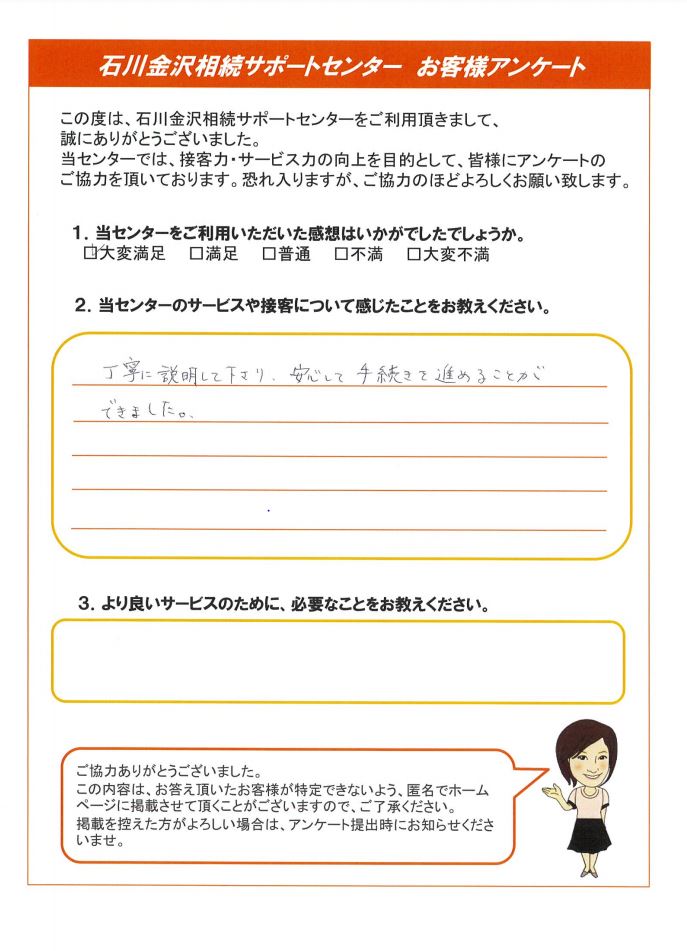 石川金沢相続サポートセンター お客様アンケート
この度は、石川金沢相続サポートセンターをご利用頂きまして、
誠にありがとうございました。
当センターでは、接客力・サービス力の向上を目的として、皆様にアンケートの
ご協力を頂いております。恐れ入りますが、ご協力のほどよろしくお願い致します。
1．当センターをご利用いただいた感想はいかがでしたでしょうか。
☑大変満足 □満足 □普通 □不満 □大変不満
2．当センターのサービスや接客について感じたことをお教えください。
丁寧に説明して下さり、安心して手続きを進めることが
できました。
3．より良いサービスのために、必要なことをお教えください。
ご協力ありがとうございました。
この内容は、お答え頂いたお客様が特定できないよう、匿名でホーム
ページに掲載させて頂くことがございますので、ご了承ください。
掲載を控えた方がよろしい場合は、アンケート提出時にお知らせくださ
いませ。